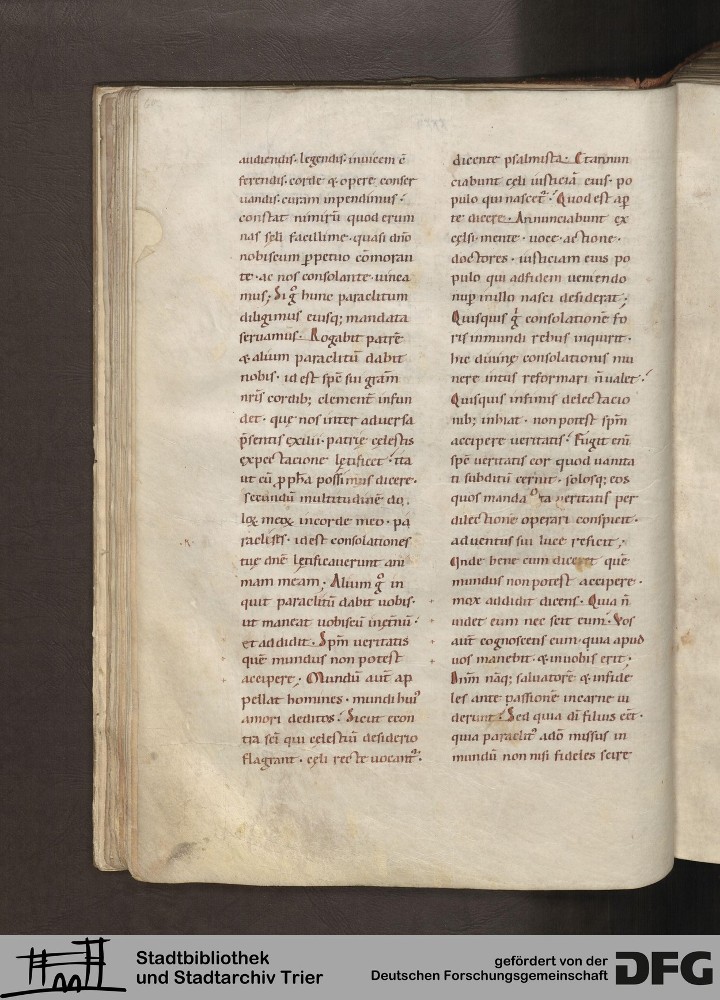 audiendis· legendis· inuicem c̄
ferendis· corde & opere conser
uandis· curam inpendimus·
constat nimirū quod erum
nas s̨cli facillime· quasi dn̄o
nobiscum ꝑpetuo cōmoran
te· ac nos consolante· uinca
mus; Si g̊ hunc paraclitum
diligimus eiusq; mandata
seruamus· Rogabit patrē
& alium paraclitū dabit
nobis· id est spē sui gr̄am
nr̄is cordib; clement̄ infun
det· quę nos inter aduersa
p̄sentis exilii· patrię cęlestis
expectacione lętificet· ita
ut cū ꝓph̄a possimus dicere·
secundū multitudinē do
loꝝ meoꝝ in corde meo· pa
raclises· id est consolationes
tuę dn̄e lętificauerunt ani
mam meam; Alium g̊ in
quit paraclitū dabit uobis·
ut maneat uobiscū in et̄nū·
et addidit· Spm̄ ueritatis
quē mundus non potest
accipere; Mundū aut̄ ap
pellat homines· mundi hui᾽
amori deditos· Sicut econ
tra sc̄i qui cęlestiū desiderio
flagrant· cęli recte uocant᷑·
dicente psalmista· Etannun
ciabunt cęli iusticiā eius· po
pulo qui nascet᷑· Quod est aꝑ
te dicere· Annunciabunt ex
cęlsi· mente· uoce· actione·
doctores· iusticiam eius po
pulo qui ad fidem ueniendo
nup̄ in illo nasci desiderat;
Quisquis g̊ consolationē fo
ris in mundi rebus inquirit·
hic diuinę consolationis mu
nere intus reformari n̄ ualet·
Quisquis infimis delectacio
nib; inhiat· non potest spm̄
accipere ueritatis· Fugit eni̅
spē ueritatis cor quod uanita
ti subditū cernit· solosq; eos
quos mandata ueritatis per
dilectione operari conspicit·
aduentus sui luce reficit;
Unde bene cum diceret quē
mundus non potest accipere·
mox addidit dicens· Quia n̄
uidet eum nec scit eum· Vos
aut̄ cognoscetis eum· quia apud
uos manebit· & in uobis erit;
Dn̄m nāq; saluatorē & infide
les ante passionē in carne ui
derunt· Sed quia di̅ filius eēt·
quia paraclit᾽ a dō missus in
mundū non nisi fideles scire
Stadtbibliothek
und Stadtarchiv Trier
gefördert von der
Deutschen Forschungsgemeinschaft
DFG